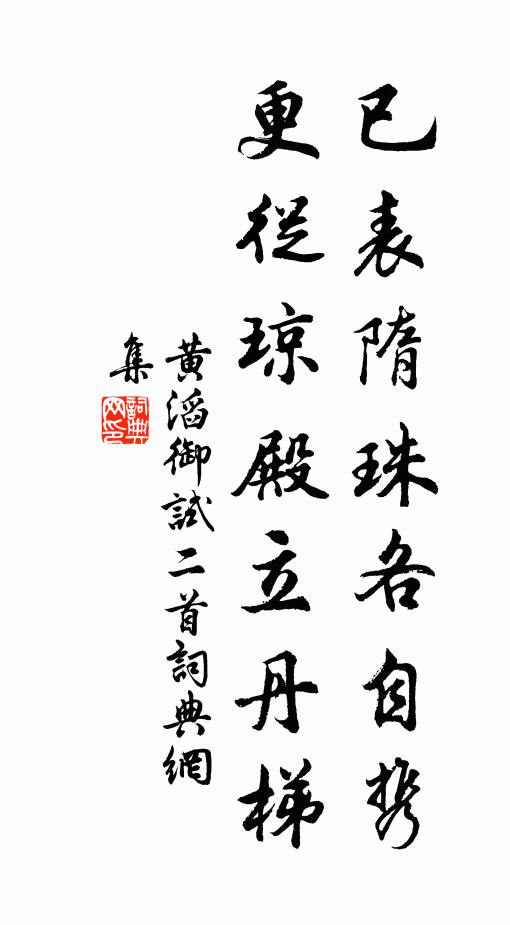 已表隋珠各自携
更從琼殿立丹梯
黄滔御試二首詞典網
集
詞典网印